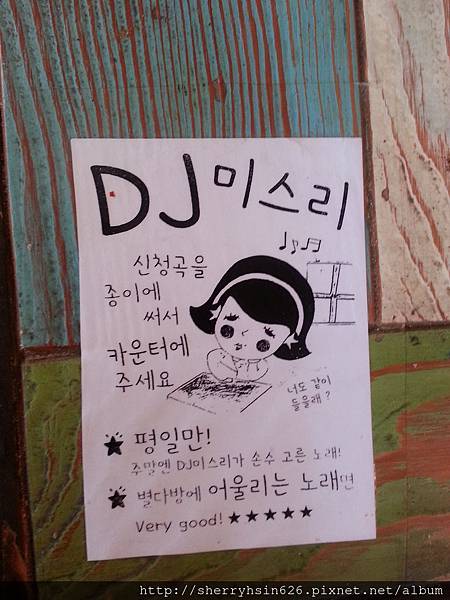 DJ미스리
신청곡을
종이에
써서
카운터에
주세요
너도 같이
들을래?
★ 평일만!
주말엔 DJ미스리가 손수 고른 노래!
★ 별다방에 어울리는 노래면
Very good! ★★★★★
http://sherryhsin626.pixnet.net/album